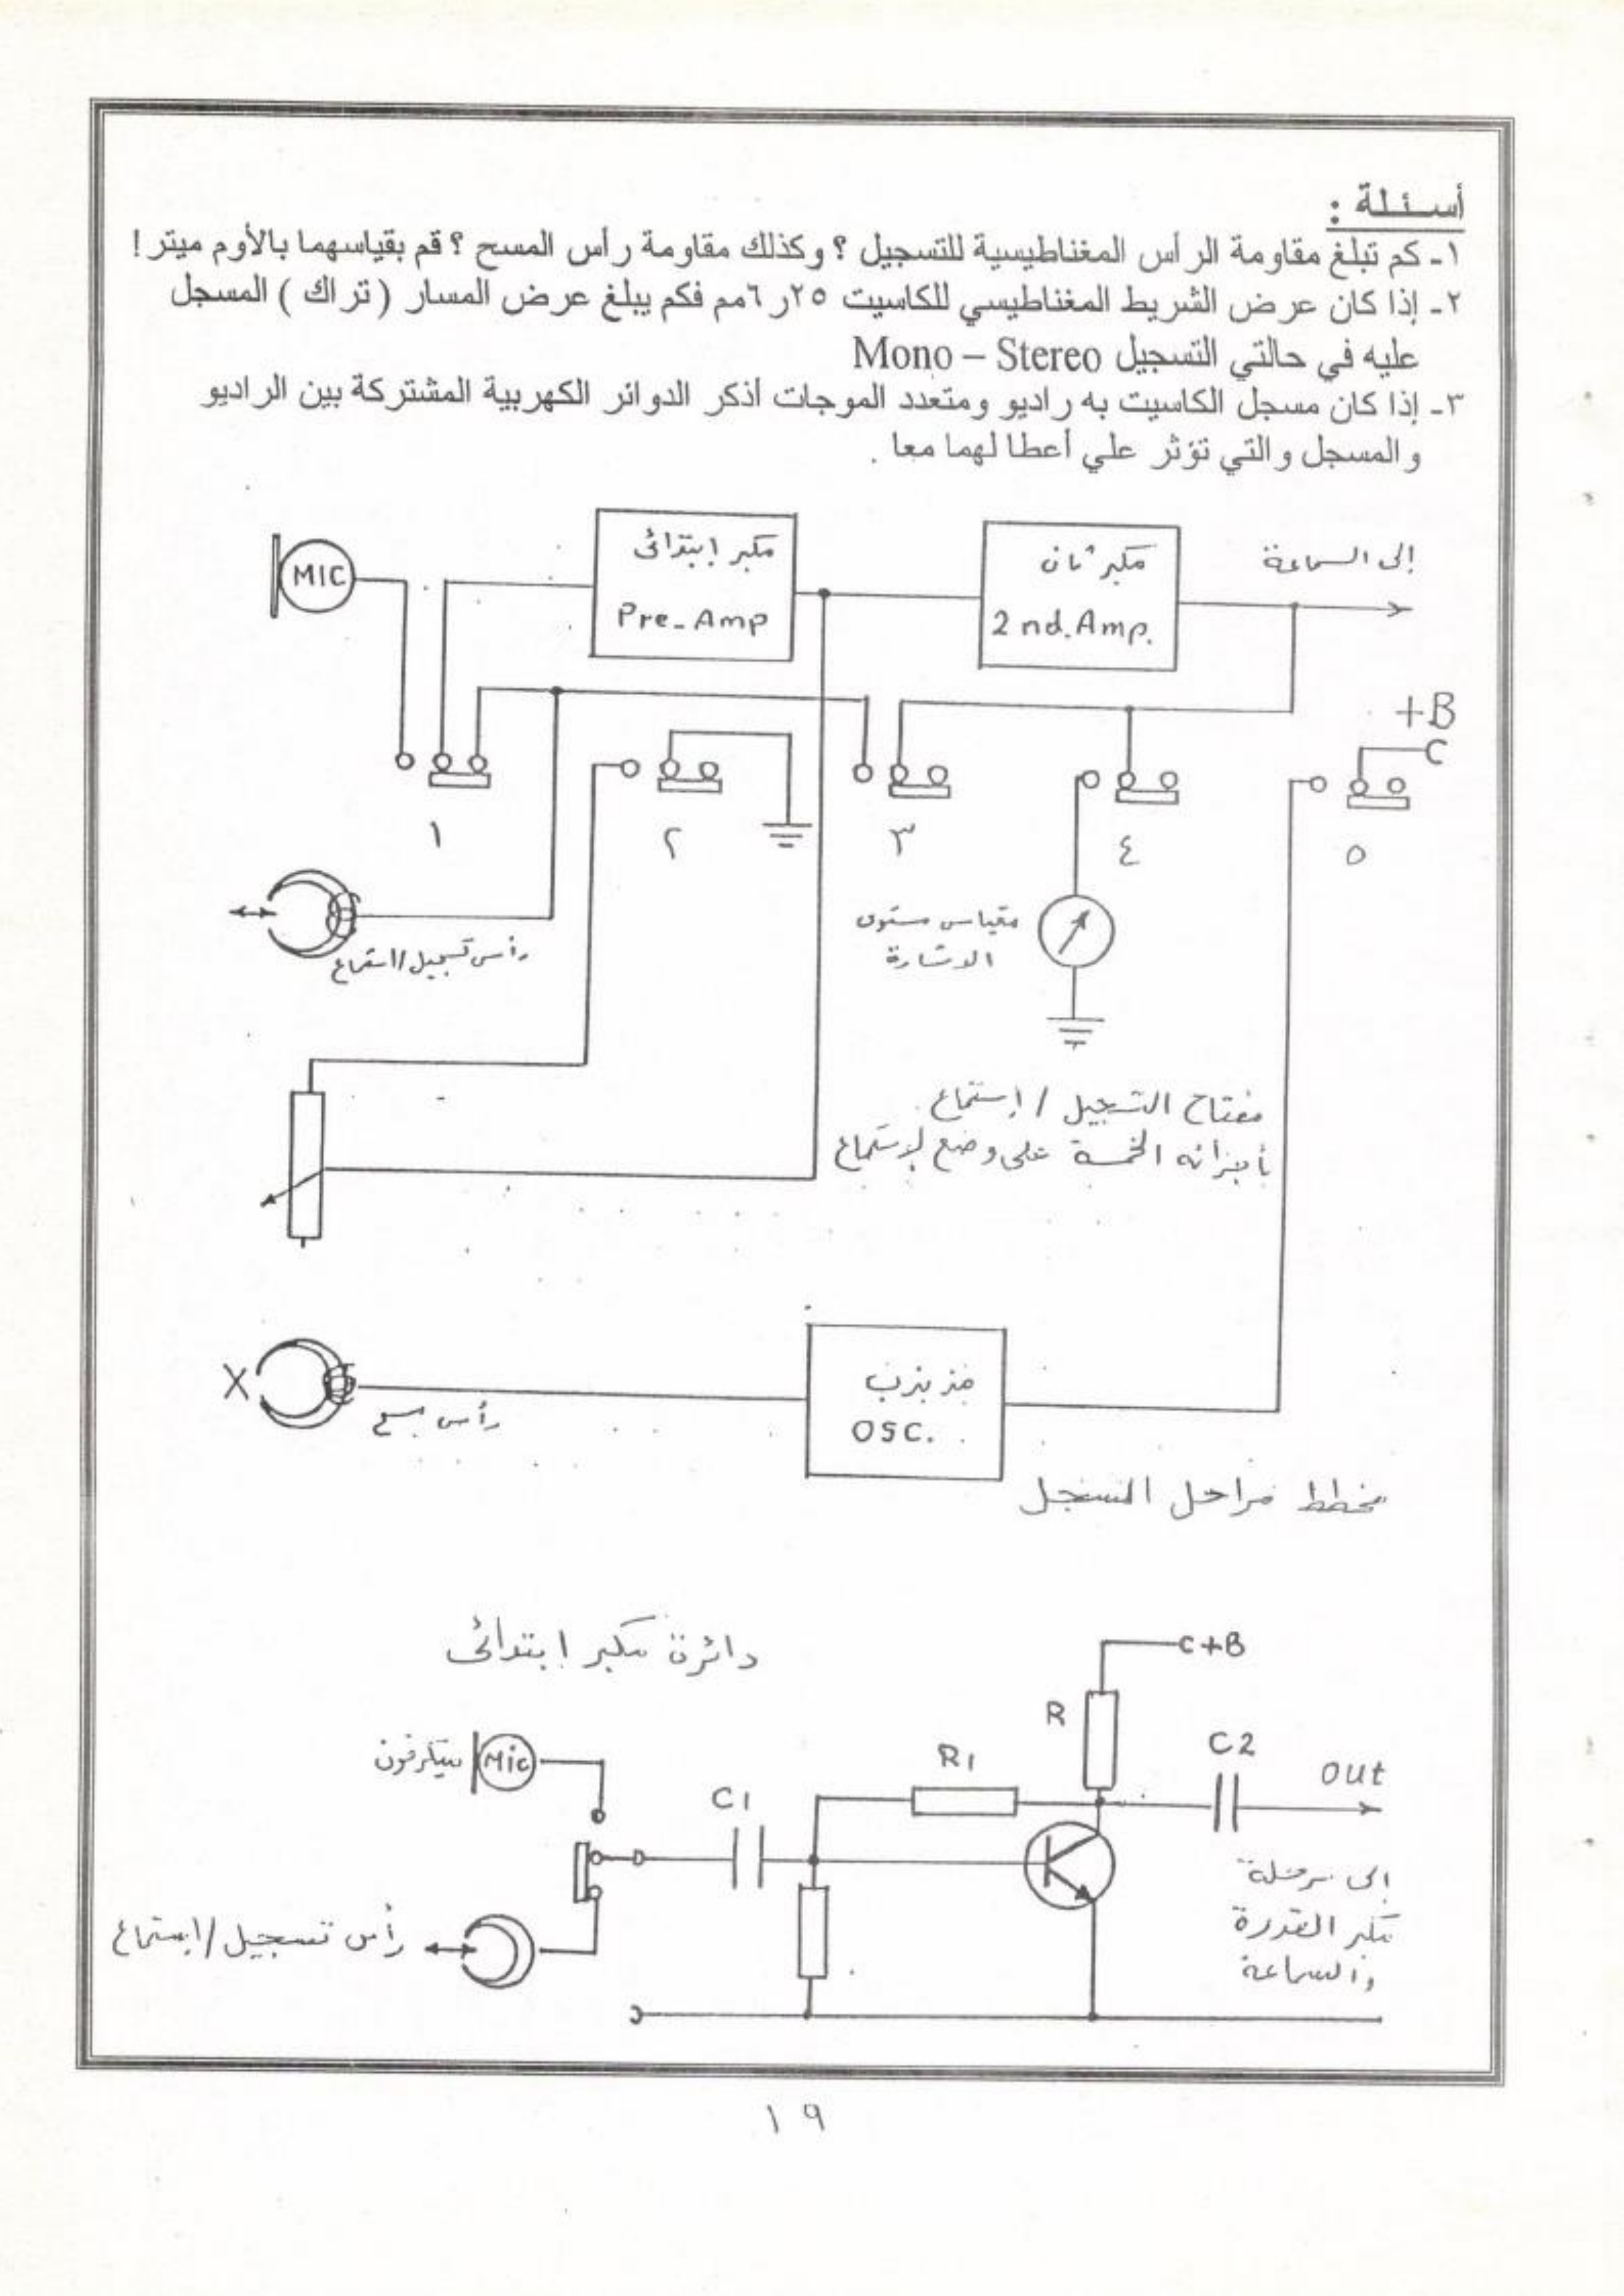 أسئلة :
١- كم تبلغ مقاومة الرأس المغناطيسية للتسجيل ؟ وكذلك مقاومة رأس المسح ؟ قم بقياسهما بالأوم ميتر !
٢- إذا كان عرض الشريط المغناطيسي للكاسيت ٢٥ر٦مم فكم يبلغ عرض المسار ( تراك ) المسجل
عليه في حالتي التسجيل Mono – Stereo
٣- إذا كان مسجل الكاسيت به راديو ومتعدد الموجات أذكر الدوائر الكهربية المشتركة بين الراديو
والمسجل والتي تؤثر علي أعطا لهما معا .
MIC
مكبر ابتدائى
Pre-Amp
مكبر ثان
2 nd. Amp.
إلى السماعة
+B
C
١
٢
٣
٤
٥
رأس تسجيل/استماع
مقياس مستوى
الاشارة
مفتاح التسجيل / إستماع
بأجزائه الخمسة على وضع لإستماع
X
رأس مسح
مذبذب
OSC.
مخطط مراحل المسجل
دائرة مكبر ابتدائى
C+B
R
ميكرفون
Mic
C1
R1
C2
out
إلى مرحلة
مكبر القدرة
والسماعة
رأس تسجيل/إستماع
١٩